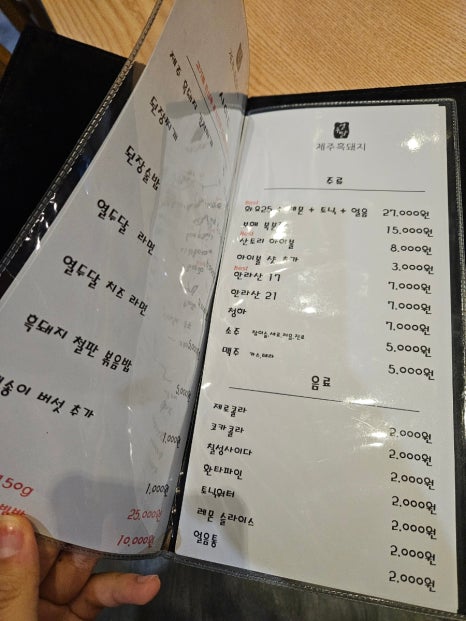 제주
된장찌개
된장술밥
열두달 라면
열두달 치즈 라면
흑돼지 철판 볶음밥
버섯 추가
5,000원
1,000원
1,000원
150g
25,000원
10,000원
제주흑돼지
주류
Best
화요25 + 레몬 + 토닉 + 얼음 27,000원
15,000원
Best
산토리 하이볼 8,000원
하이볼 샷 추가 3,000원
Best
한라산 17 7,000원
한라산 21 7,000원
청하 7,000원
소주 참이슬,새로,처음,진로 5,000원
맥주 카스,테라 5,000원
음료
제로콜라 2,000원
코카콜라 2,000원
칠성사이다 2,000원
환타파인 2,000원
토닉워터 2,000원
레몬 슬라이스 2,000원
얼음통 2,000원